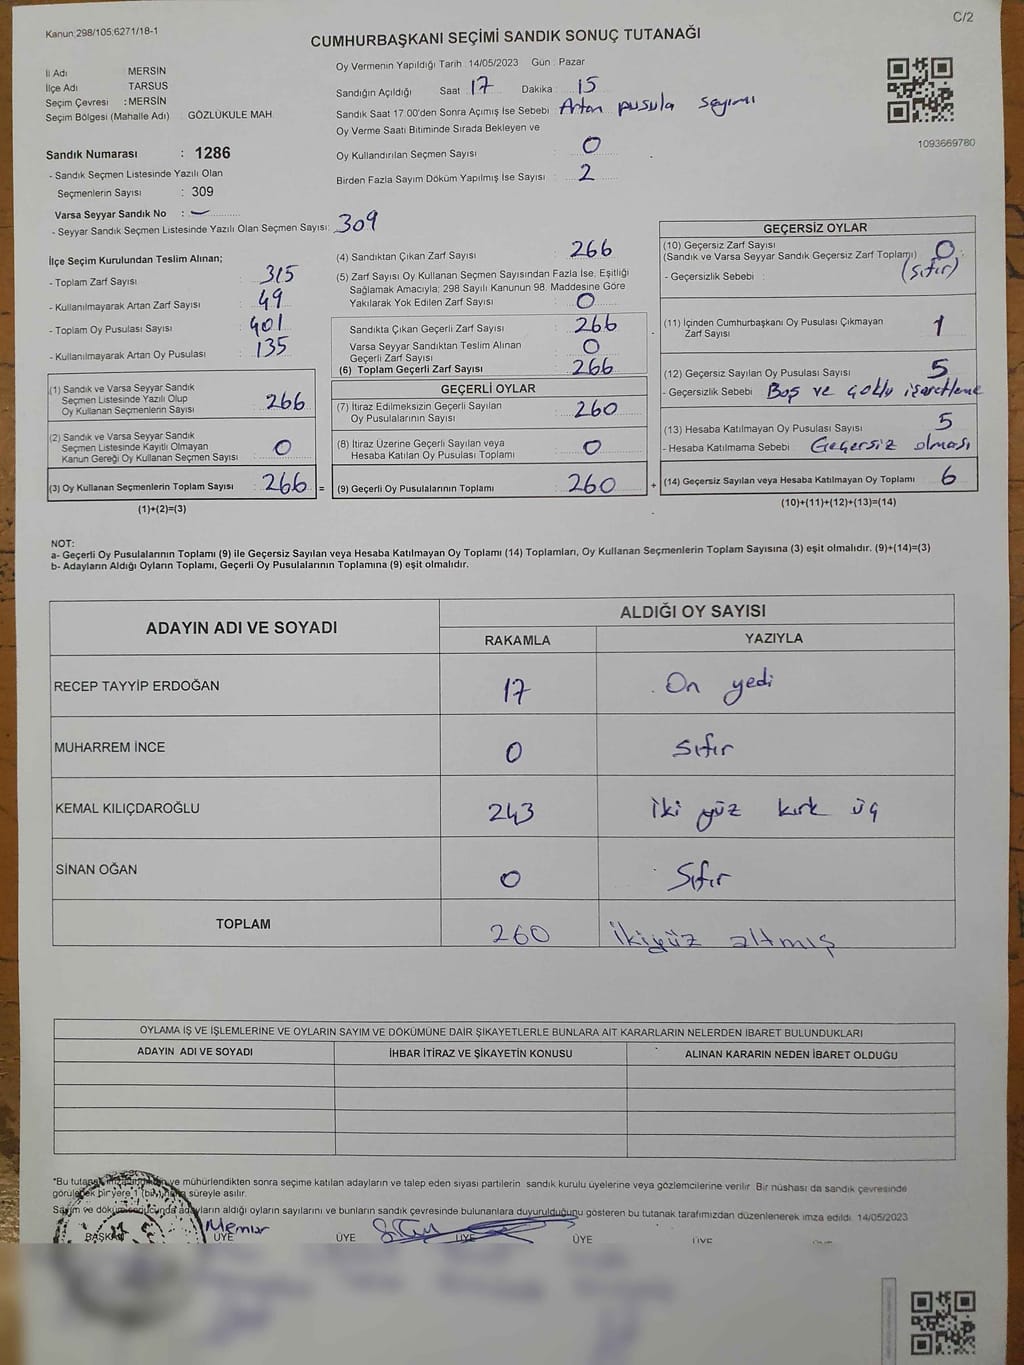 C/2
Kanun:298/105;6271/18-1
CUMHURBAŞKANI SEÇİMİ SANDIK SONUÇ TUTANAĞI
İl Adı MERSİN
İlçe Adı TARSUS
Seçim Çevresi : MERSİN
Seçim Bölgesi (Mahalle Adı) : GÖZLÜKULE MAH.
Sandık Numarası : 1286
- Sandık Seçmen Listesinde Yazılı Olan
Seçmenlerin Sayısı : 309
Varsa Seyyar Sandık No : —
- Seyyar Sandık Seçmen Listesinde Yazılı Olan Seçmen Sayısı: 309
Oy Vermenin Yapıldığı Tarih : 14/05/2023 Gün : Pazar
Sandığın Açıldığı Saat 17 Dakika 15
Sandık Saat 17.00'den Sonra Açımış İse Sebebi : Artan pusula sayımı
Oy Verme Saati Bitiminde Sırada Bekleyen ve
Oy Kullandırılan Seçmen Sayısı : 0
Birden Fazla Sayım Döküm Yapılmış İse Sayısı : 2
1093669780
İlçe Seçim Kurulundan Teslim Alınan;
- Toplam Zarf Sayısı : 315
- Kullanılmayarak Artan Zarf Sayısı : 49
- Toplam Oy Pusulası Sayısı : 401
- Kullanılmayarak Artan Oy Pusulası : 135
(1) Sandık ve Varsa Seyyar Sandık
Seçmen Listesinde Yazılı Olup
Oy Kullanan Seçmenlerin Sayısı : 266
(2) Sandık ve Varsa Seyyar Sandık
Seçmen Listesinde Kayıtlı Olmayan
Kanun Gereği Oy Kullanan Seçmen Sayısı : 0
(3) Oy Kullanan Seçmenlerin Toplam Sayısı : 266 =
(1)+(2)=(3)
(4) Sandıktan Çıkan Zarf Sayısı : 266
(5) Zarf Sayısı Oy Kullanan Seçmen Sayısından Fazla İse, Eşitliği
Sağlamak Amacıyla; 298 Sayılı Kanunun 98. Maddesine Göre
Yakılarak Yok Edilen Zarf Sayısı : 0
Sandıkta Çıkan Geçerli Zarf Sayısı : 266
Varsa Seyyar Sandıktan Teslim Alınan
Geçerli Zarf Sayısı : 0
(6) Toplam Geçerli Zarf Sayısı : 266
GEÇERLİ OYLAR
(7) İtiraz Edilmeksizin Geçerli Sayılan
Oy Pusulalarının Sayısı : 260
(8) İtiraz Üzerine Geçerli Sayılan veya
Hesaba Katılan Oy Pusulası Toplamı : 0
(9) Geçerli Oy Pusulalarının Toplamı : 260 +
GEÇERSİZ OYLAR
(10) Geçersiz Zarf Sayısı
(Sandık ve Varsa Seyyar Sandık Geçersiz Zarf Toplamı) : 0
- Geçersizlik Sebebi : (sıfır)
(11) İçinden Cumhurbaşkanı Oy Pusulası Çıkmayan
Zarf Sayısı : 1
(12) Geçersiz Sayılan Oy Pusulası Sayısı : 5
- Geçersizlik Sebebi : Boş ve çoklu işaretleme
(13) Hesaba Katılmayan Oy Pusulası Sayısı : 5
- Hesaba Katılmama Sebebi : Geçersiz olması
(14) Geçersiz Sayılan veya Hesaba Katılmayan Oy Toplamı : 6
(10)+(11)+(12)+(13)=(14)
NOT:
a- Geçerli Oy Pusulalarının Toplamı (9) ile Geçersiz Sayılan veya Hesaba Katılmayan Oy Toplamı (14) Toplamları, Oy Kullanan Seçmenlerin Toplam Sayısına (3) eşit olmalıdır. (9)+(14)=(3)
b- Adayların Aldığı Oyların Toplamı, Geçerli Oy Pusulalarının Toplamına (9) eşit olmalıdır.
ADAYIN ADI VE SOYADI
ALDIĞI OY SAYISI
RAKAMLA YAZIYLA
RECEP TAYYİP ERDOĞAN 17 On yedi
MUHARREM İNCE 0 sıfır
KEMAL KILIÇDAROĞLU 243 iki yüz kırk üç
SİNAN OĞAN 0 Sıfır
TOPLAM 260 ikiyüz altmış
OYLAMA İŞ VE İŞLEMLERİNE VE OYLARIN SAYIM VE DÖKÜMÜNE DAİR ŞİKAYETLERLE BUNLARA AİT KARARLARIN NELERDEN İBARET BULUNDUKLARI
ADAYIN ADI VE SOYADI İHBAR İTİRAZ VE ŞİKAYETİN KONUSU ALINAN KARARIN NEDEN İBARET OLDUĞU
*Bu tutanak ve mühürlendikten sonra seçime katılan adayların ve talep eden siyasi partilerin sandık kurulu üyelerine veya gözlemcilerine verilir. Bir nüshası da sandık çevresinde
görülecek bir yere 1 (bir) hafta süreyle asılır.
Sayım ve döküm sonucunda adayların aldığı oyların sayılarını ve bunların sandık çevresinde bulunanlara duyurulduğunu gösteren bu tutanak tarafımızdan düzenlenerek imza edildi. 14/05/2023
BAŞKAN Memur ÜYE ÜYE ÜYE ÜYE ÜYE